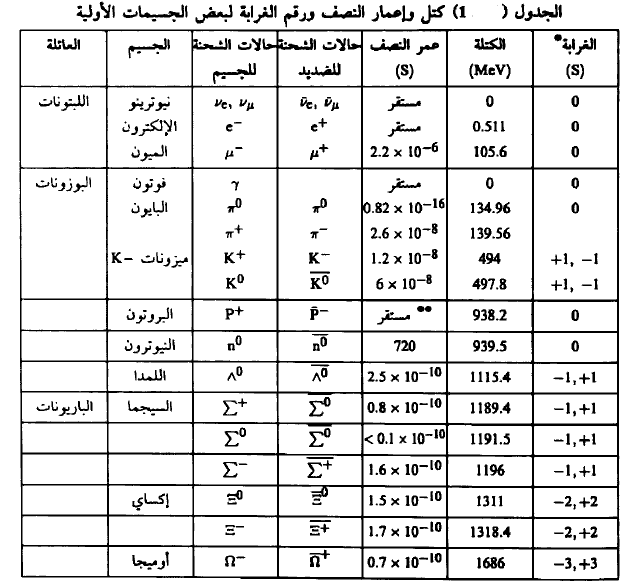 الجدول ( 1) كتل وإعمار النصف ورقم الغرابة لبعض الجسيمات الأولية
العائلة الجسيم حالات الشحنة للجسيم حالات الشحنة للضديد عمر النصف (S) الكتلة (MeV) الغرابة* (S)
اللبتونات نيوترينو νe, νμ ν̄e, ν̄μ مستقر 0 0
الإلكترون e− e+ مستقر 0.511 0
الميون μ− μ+ 2.2 × 10−6 105.6 0
البوزونات فوتون γ مستقر 0 0
البايون π0 π0 0.82 × 10−16 134.96 0
π+ π− 2.6 × 10−8 139.56
ميزونات −K K+ K− 1.2 × 10−8 494 +1, −1
K0 K̄0 6 × 10−8 497.8 +1, −1
البروتون P+ P̄− مستقر ** 938.2 0
النيوترون n0 n̄0 720 939.5 0
اللمدا Λ0 Λ̄0 2.5 × 10−10 1115.4 −1, +1
الباريونات السيجما Σ+ Σ̄0 0.8 × 10−10 1189.4 −1, +1
Σ0 Σ̄0 < 0.1 × 10−10 1191.5 −1, +1
Σ− Σ̄+ 1.6 × 10−10 1196 −1, +1
إكساي Ξ0 Ξ̄0 1.5 × 10−10 1311 −2, +2
Ξ− Ξ̄+ 1.7 × 10−10 1318.4 −2, +2
أوميجا Ω− Ω̄+ 0.7 × 10−10 1686 −3, +3